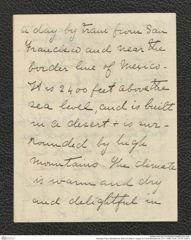 a day by train from San
Francisco and near the
border line of Mexico.
It is 2400 feet above the
sea level, and is built
in a desert + is sur-
rounded by high
mountains. The climate
is warm and dry
and delightful in